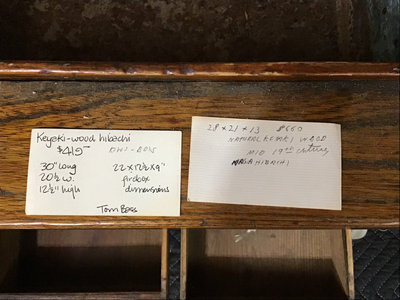 Keyaki-wood hibachi
$419-
30" long
20½ w.
12½" high
22 x 12½ x 9"
firebox
dimensions
Tom Bess
28 x 21 x 13 $650
NATURAL KEYAKI WOOD
MID 19th century
NAGA HIBACHI